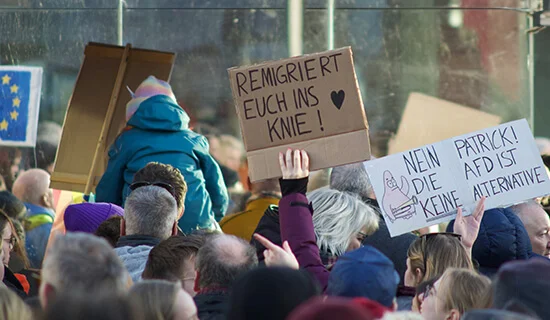 REMIGRIERT
EUCH INS
KNIE! ♥
NEIN PATRICK!
DIE AFD IST
KEINE ALTERNATIVE